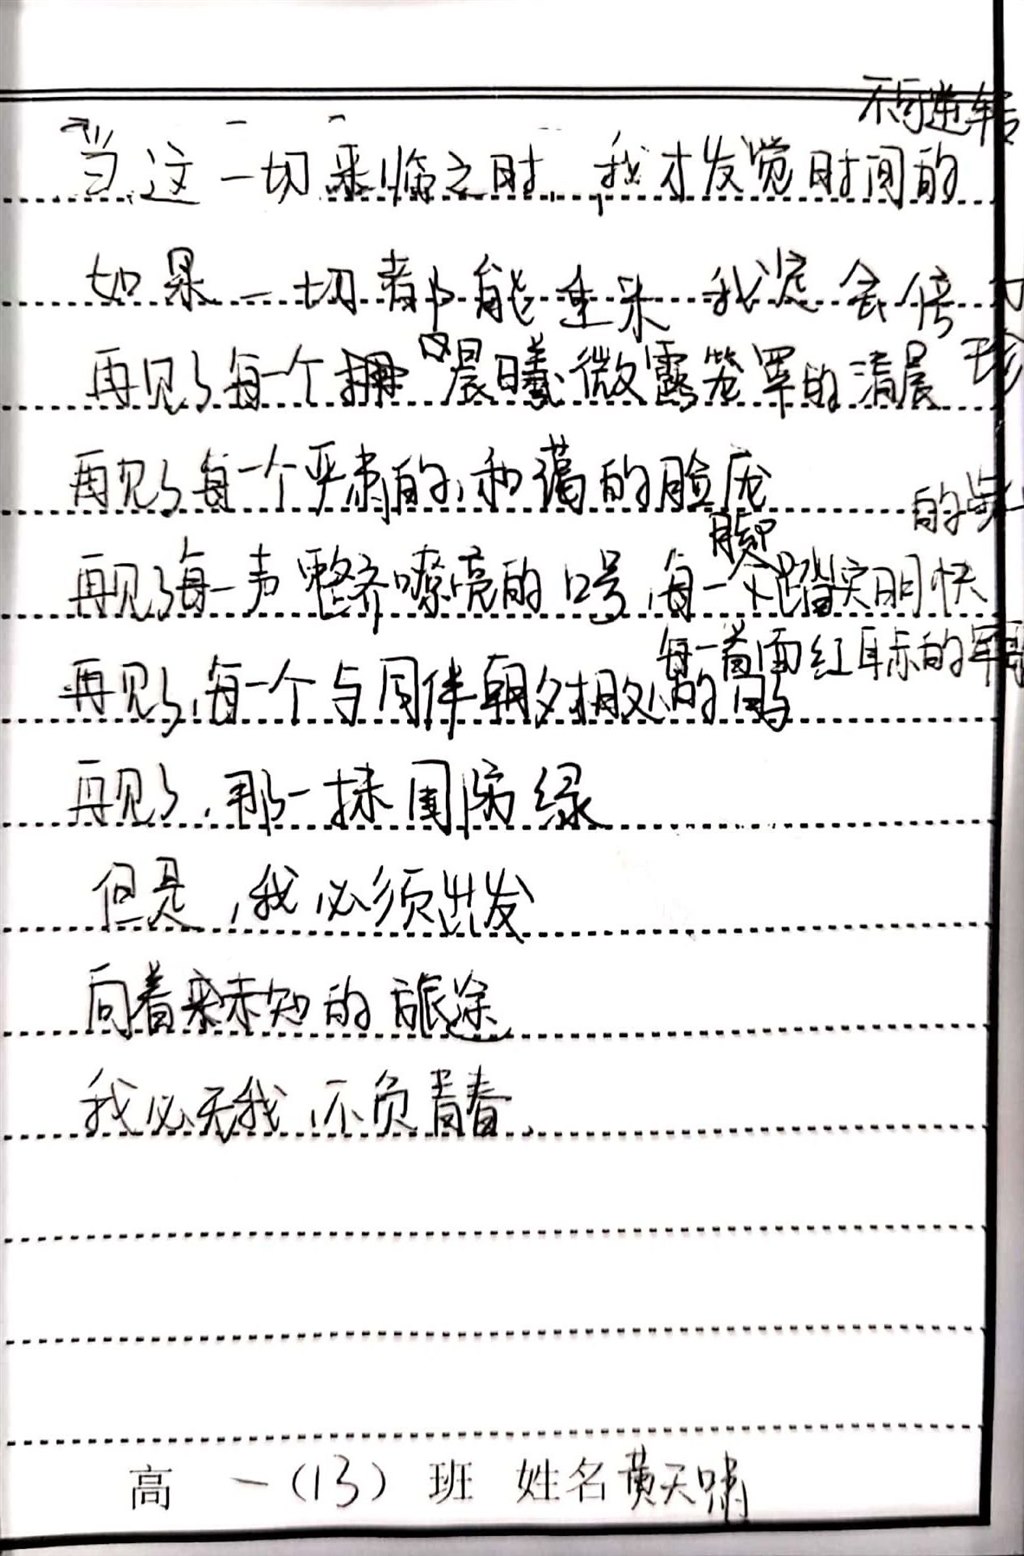 当这一切来临之时，我才发觉时间的
不可逆转
如果一切都能重来 我定会倍加
珍
再见了每一个 晨曦微露笼罩的清晨
再见了每一个严肃的,和蔼的脸庞
再见了每一声整齐嘹亮的口号,每一个踏实明快
的
脚
再见了,每一个与同伴朝夕相处的
每一首面红耳赤的军歌
再见了,那一抹国防绿
但是,我必须出发
向着未知的旅途
我必无我,不负青春.
高一(13)班 姓名黄天啸